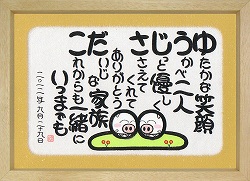 ゆたかな笑顔
うかべ二人
じっと優しく
ささえてくれて
ありがとう
だいじな家族
これからも一緒に
いつまでも
二〇二二年九月二十九日